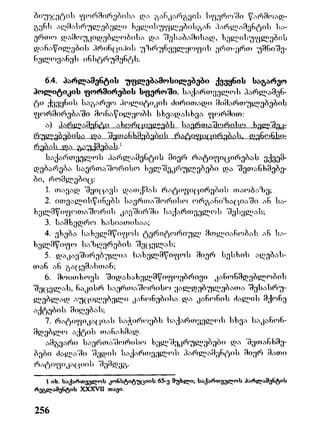 ბიუჯეტის ფორმირებისა და განკარგვის სფეროში წარმოად-
გენს აღმასრულებელი ხელისუფლებისგან პარლამენტის სა-
ერთო დამოუკიდებლობისა და შესაბამისად, ხელისუფლების
დანაწილების პრინციპის უზრუნველყოფის ერთ-ერთ უმნიშვ-
ნელოვანეს ინსტრუმენტს.
6.4. პარლამენტის უფლებამოსილებები ქვეყნის საგარეო
პოლიტიკის ფორმირების სფეროში. საქართველოს პარლამენ-
ტი ქვეყნის საგარეო პოლიტიკის ძირითადი მიმართულებების
ფორმირებაში მონაწილეობს სხვადასხვა ფორმით:
ა) პარლამენტი ახორციელებს საერთაშორისო ხელშეკ-
რულებებისა და შეთანხმებების რატიფიცირებას, დენონსი-
რებას და გაუქმებას.¹
საქართველოს პარლამენტის მიერ რატიფიცირებას ექვემ-
დებარება საერთაშორისო ხელშეკრულებები და შეთანხმებე-
ბი, რომლებიც:
1. თავად შეიცავს დათქმას რატიფიცირების თაობაზე;
2. ითვალისწინებს საერთაშორისო ორგანიზაციაში ან სა-
ხელმწიფოთაშორის კავშირში საქართველოს შესვლას;
3. სამხედრო ხასიათისაა;
4. ეხება სახელმწიფოს ტერიტორიულ მთლიანობას ან სა-
ხელმწიფო საზღვრების შეცვლას;
5. დაკავშირებულია სახელმწიფოს მიერ სესხის აღებას-
თან ან გაცემასთან;
6. მოითხოვს შიდასახელმწიფოებრივი კანონმდებლობის
შეცვლას, ნაკისრ საერთაშორისო ვალდებულებათა შესასრუ-
ლებლად აუცილებელი კანონებისა და კანონის ძალის მქონე
აქტების მიღებას;
7. რატიფიკაციას საჭიროებს საქართველოს სხვა საკანონ-
მდებლო აქტის თანახმად.
ამგვარი საერთაშორისო ხელშეკრულებები და შეთანხმე-
ბები ძალაში შედის საქართველოს პარლამენტის მიერ მათი
რატიფიკაციის შემდეგ.
1 იხ. საქართველოს კონსტიტუციის 65-ე მუხლი; საქართველოს პარლამენტის
რეგლამენტის XXXVII თავი.
256